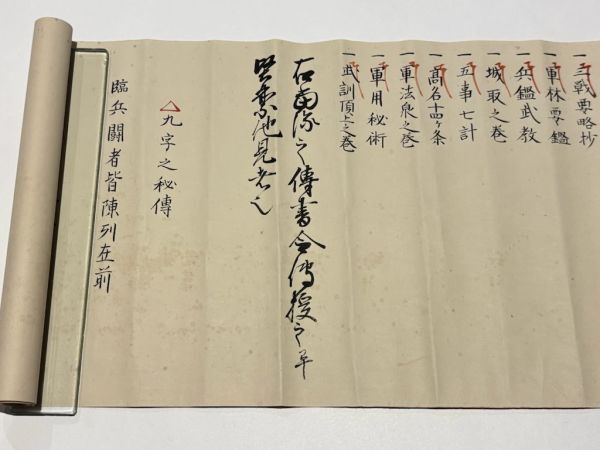 一三戦要略抄
一軍林要鑑
一兵鑑武教
一城取之巻
一五事七計
一髙名十四ヶ条
一軍法泉之巻
一軍用秘術
一武訓頂上之巻
右流之傳書令傳授之畢
堅禁他見者也
△九字之秘傳
臨兵闘者皆陳列在前